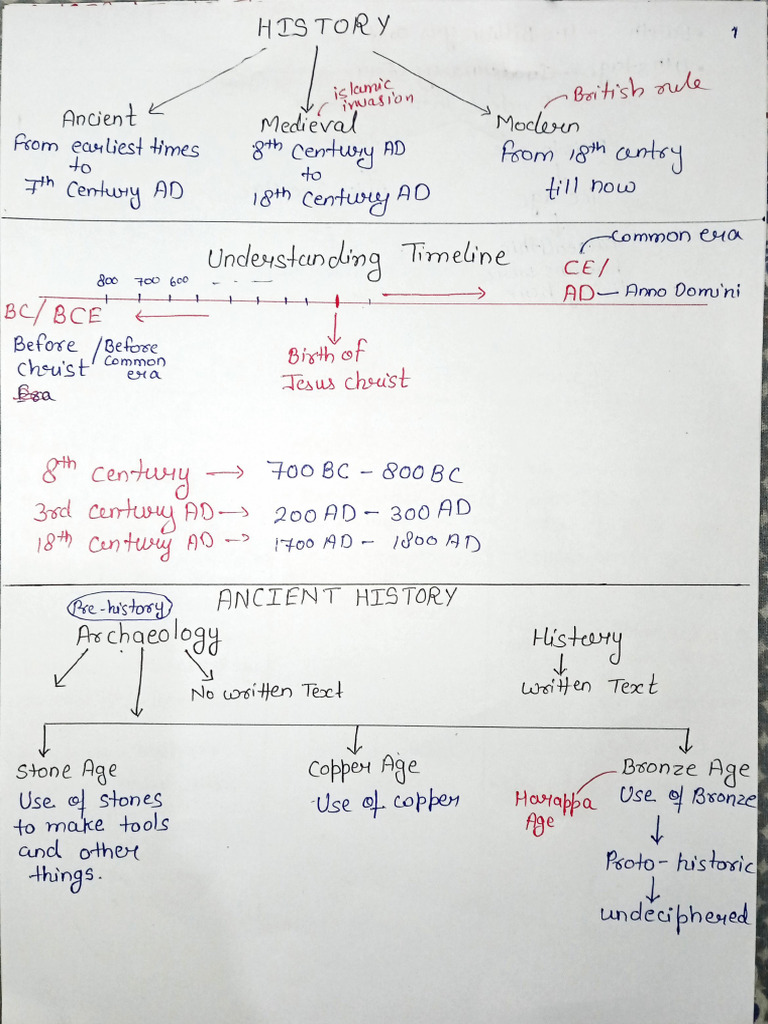 HISTORY
1
Ancient
From earliest times
to
7th Century AD
islamic
invasion
Medieval
8th Century AD
to
18th Century AD
British rule
Modern
From 18th centry
till now
Understanding Timeline
Common era
CE/
AD — Anno Domini
800 700 600
BC/BCE
Before
Christ
Era
/Before
Common
era
Birth of
Jesus Christ
8th Century → 700 BC - 800 BC
3rd Century AD → 200 AD - 300 AD
18th Century AD → 1700 AD - 1800 AD
ANCIENT HISTORY
Pre-history
Archaeology
No written Text
History
Written Text
Stone Age
Use of stones
to make tools
and other
things.
Copper Age
Use of copper
Bronze Age
Harappa
Age
Use of Bronze
Proto-historic
undeciphered